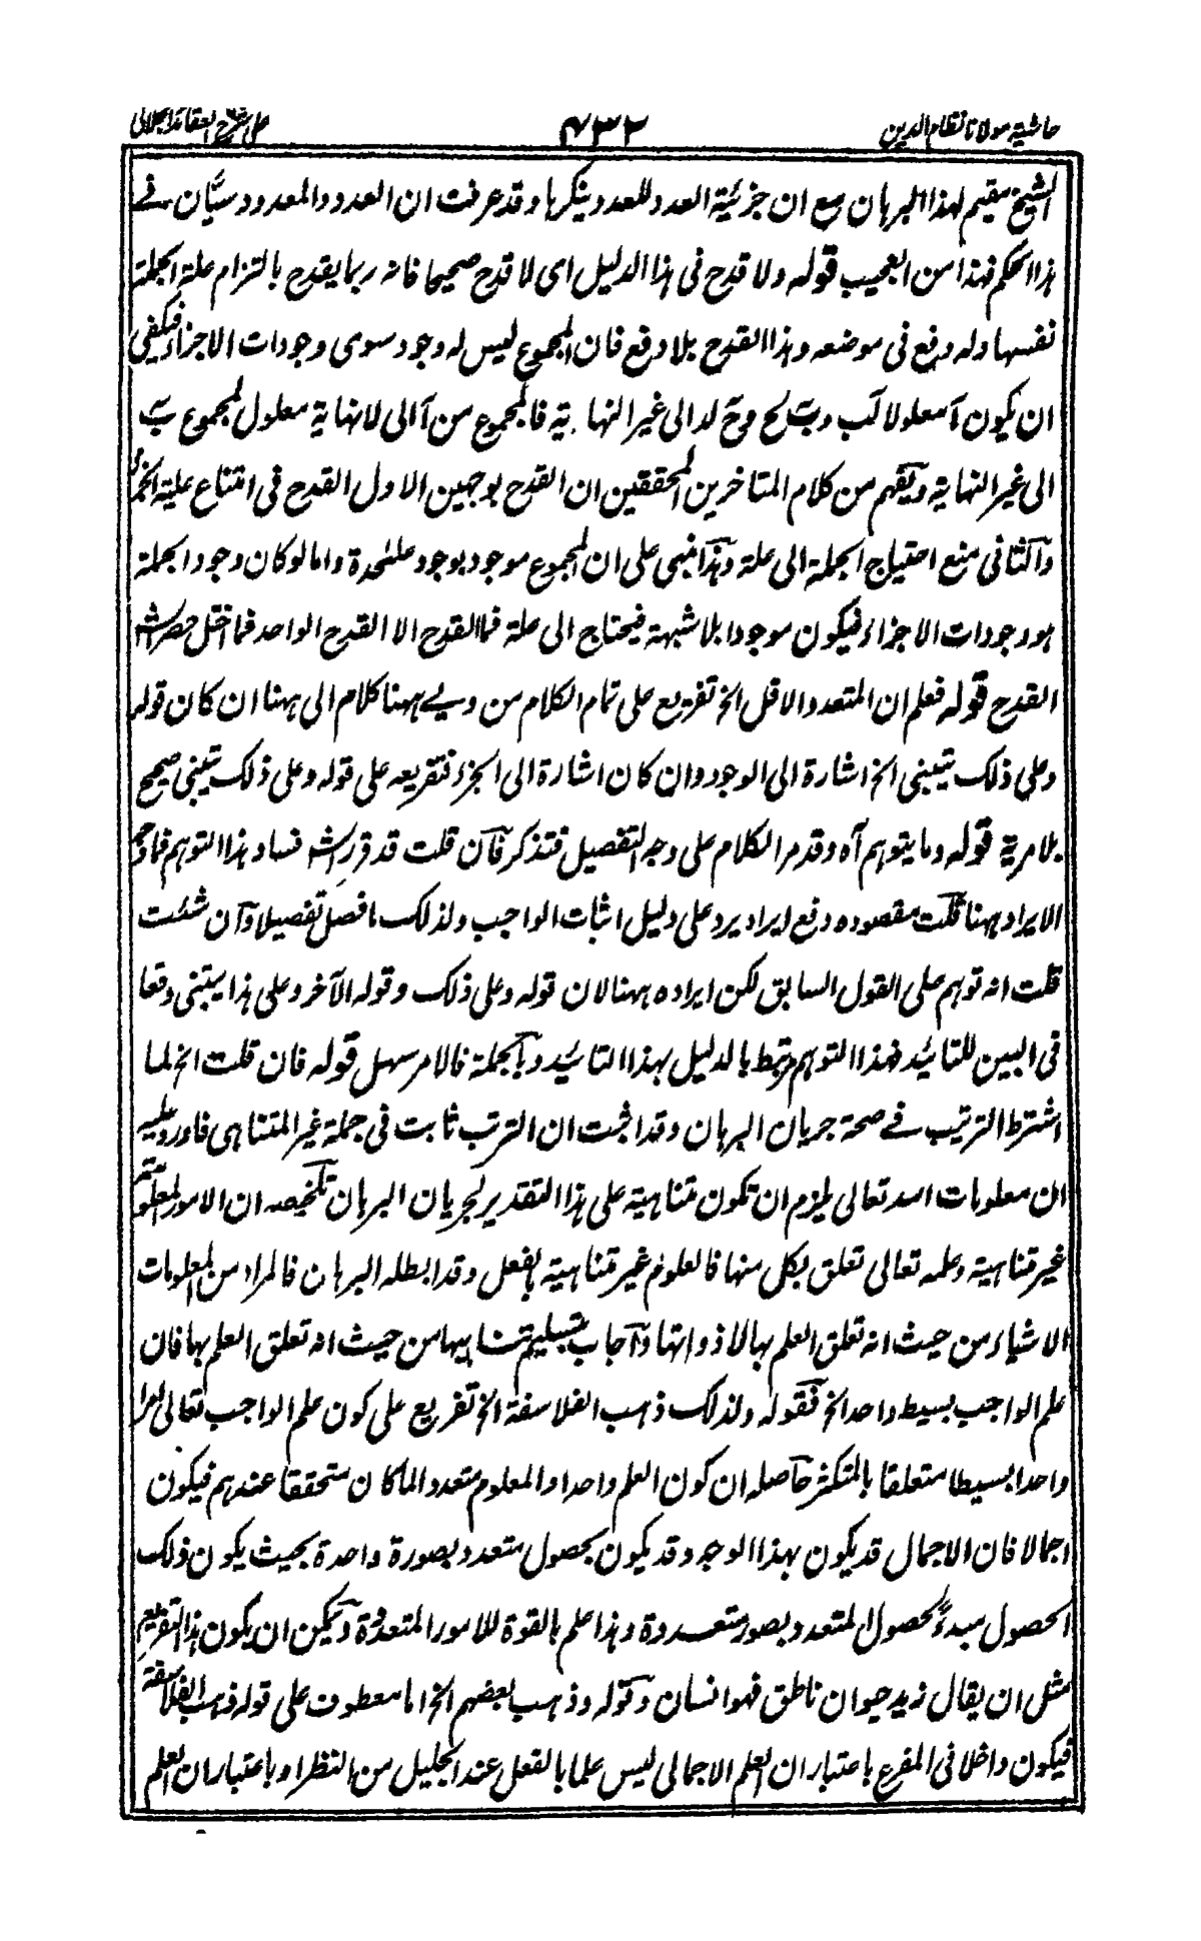 حاشية مولانا نظام الدين
۷۳۲
على شرح العقائد الجلالى
الشيخ مقيم لهذا البرهان مع ان جزئية العدد للعدد ينكرها وقد عرفت ان العدد والمعدود سيان فى
هذا الحكم فهذا من العجيب قوله ولا قدح فى هذا الدليل اى لا قدح صحيحا فانه ربما يقدح بالتزام علة الجملة
نفسها وله دفع فى موضعه وهذا القدح بلا دفع فان المجموع ليس له وجود سوى وجودات الاجزاء فيكفى
ان يكون آ معلولا لب وب لج وج لد الى غير النهاية فالمجموع من آ الى لا نهاية معلول لمجموع ب
الى غير النهاية ويفهم من كلام المتاخرين المحققين ان القدح بوجهين الاول القدح فى امتناع علية الجزء
والثانى منع احتياج الجملة الى علة وهذا مبنى على ان المجموع موجود بوجود علحدة واما لو كان وجود الجملة
هو وجودات الاجزاء فيكون موجودا بلا شبهة فيحتاج الى علة فما القدح الا القدح الواحد فما اختل حصر الش
القدح قوله فعلم ان المتعدد الاقل الخ تفريع على تمام الكلام من وهى ههنا كلام الى ههنا ان كان قوله
وعلى ذلك يبتنى الخ اشارة الى الوجود وان كان اشارة الى الجزء فتفريعه على قوله وعلى ذلك يبتنى صحيح
بلا مرية قوله وما يتوهم آه وقد مر الكلام على وجه التفصيل فتذكر فان قلت قد قرر الش فساد هذا التوهم فما وجه
الايراد ههنا قلت مقصوده دفع ايراد يرد على دليل اثبات الواجب ولذلك ما فصل تفصيلا وان شئت
قلت انه توهم على القول السابق لكن ايراده ههنا لان قوله وعلى ذلك وقوله الآخر وعلى هذا يبتنى وقعا
فى البين للتائيد فهذا التوهم مرتبط بالدليل بهذا التائيد وبالجملة فالامر سهل قوله فان قلت الخ لما
اشترط الترتيب فى صحة جريان البرهان وقد اثبت ان الترتب ثابت فى جملة غير المتناهى فاورد عليه
ان معلومات الله تعالى يلزم ان تكون متناهية على هذا التقدير لجريان البرهان تلخيصه ان الامور المعلومة
غير متناهية وعلمه تعالى تعلق بكل منها فالعلوم غير متناهية بالفعل وقد ابطله البرهان فالمراد من المعلومات
الاشياء من حيث انه تعلق العلم بها لا ذواتها واجاب بتسليم تناهيها من حيث انه تعلق العلم بها فان
علم الواجب بسيط واحد الخ فقوله ولذلك ذهب الفلاسفة الخ تفريع على كون علم الواجب تعالى امرا
واحدا بسيطا متعلقا بالمتكثر حاصله ان كون العلم واحدا والمعلوم متعدد الما كان متحققا عندهم فيكون
اجمالا فان الاجمال قد يكون بهذا الوجه وقد يكون بحصول متعدد بصورة واحدة بحيث يكون ذلك
الحصول مبدءً لحصول المتعدد بصور متعددة وهذا علم بالقوة للامور المتعددة ويمكن ان يكون هذا التفريع
مثل ان يقال زيد حيوان ناطق فهو انسان وقوله وذهب بعضهم الخ اما معطوف على قوله ذهب الفلاسفة
فيكون داخلا فى المفرع باعتبار ان العلم الاجمالى ليس علما بالفعل عند الجليل من النظر او باعتبار ان العلم